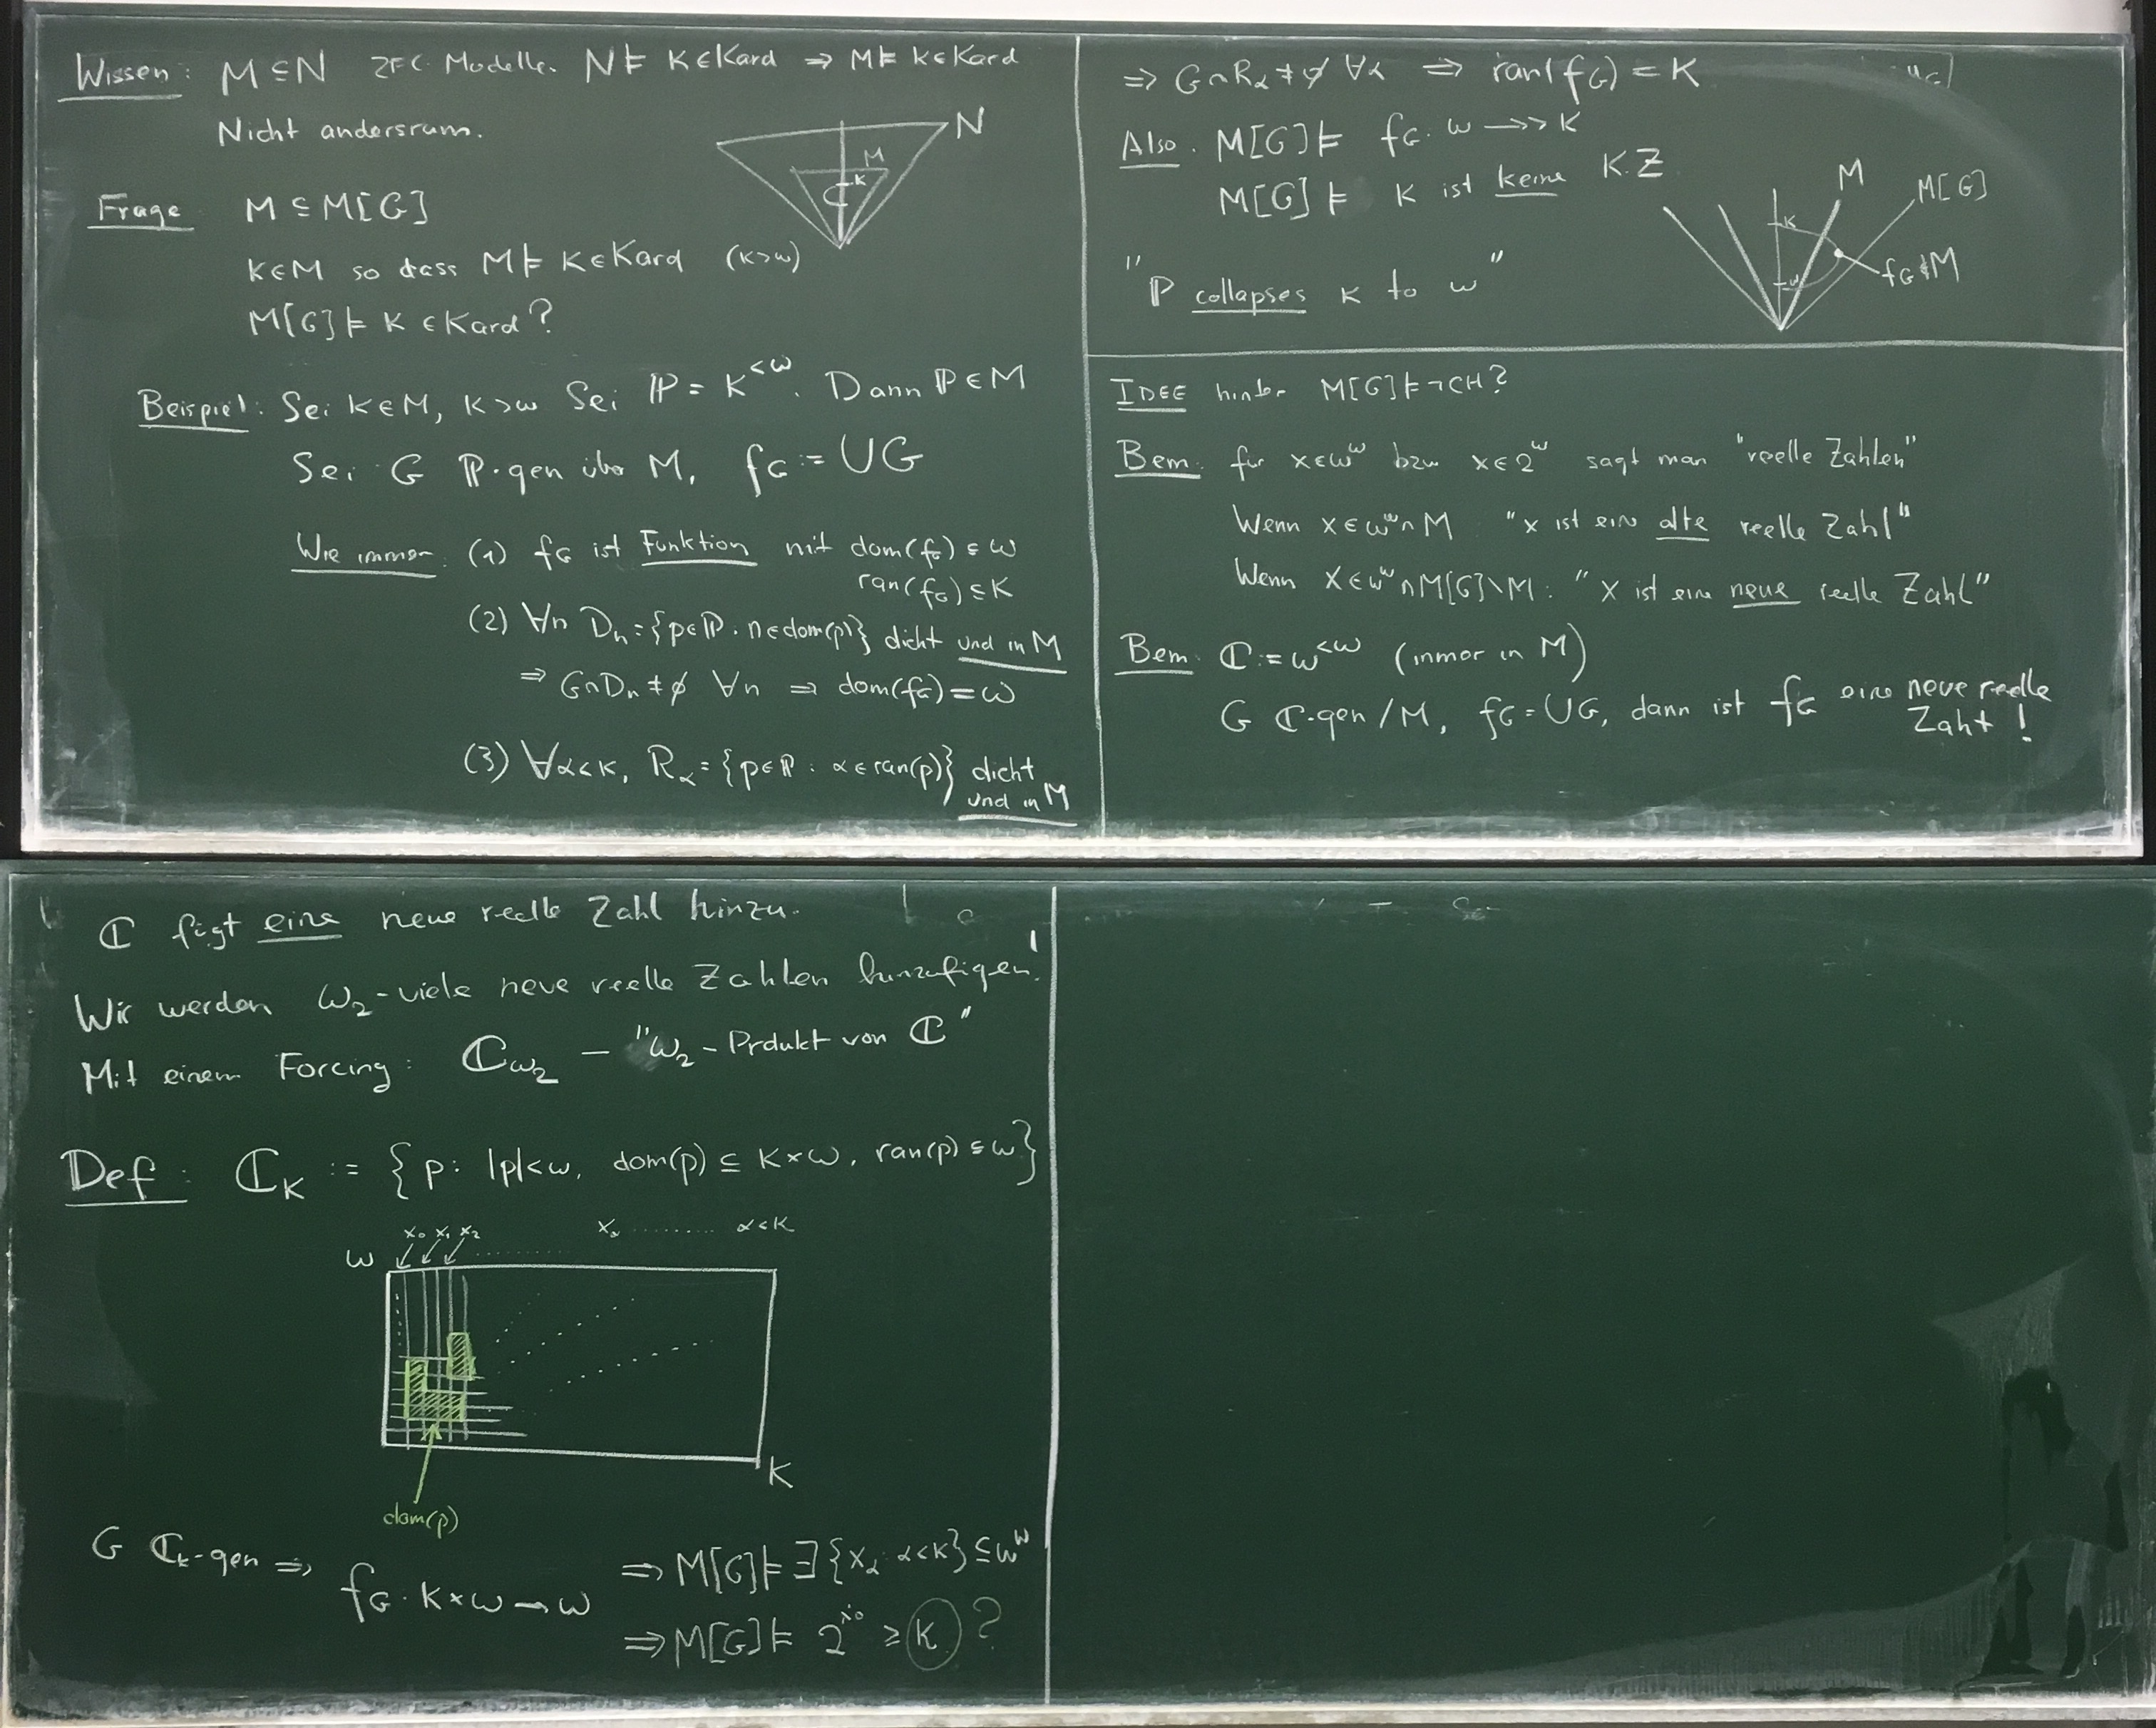 Wissen: M ⊆ N ZFC-Modelle. N ⊨ κ ∈ Kard ⇒ M ⊨ κ ∈ Kard
Nicht andersrum.
N
M
κ
Frage M ⊆ M[G]
κ ∈ M so dass M ⊨ κ ∈ Kard (κ > ω)
M[G] ⊨ κ ∈ Kard?
Beispiel: Sei κ ∈ M, κ > ω Sei ℙ = κ^{<ω}. Dann ℙ ∈ M
Sei G ℙ-gen über M, f_G := ∪G
Wie immer: (1) f_G ist Funktion mit dom(f_G) ⊆ ω
ran(f_G) ⊆ κ
(2) ∀n D_n = {p ∈ ℙ : n ∈ dom(p)} dicht und in M
⇒ G∩D_n ≠ ∅ ∀n ⇒ dom(f_G) = ω
(3) ∀α<κ, R_α = {p ∈ ℙ : α ∈ ran(p)} dicht
und in M
⇒ G∩R_α ≠ ∅ ∀α ⇒ ran(f_G) = κ
Also: M[G] ⊨ f_G: ω ↠ κ
M[G] ⊨ κ ist keine K.Z
"ℙ collapses κ to ω"
M
M[G]
κ
ω
f_G ∉ M
IDEE hinter M[G] ⊨ ¬CH?
Bem: für x ∈ ω^ω bzw x ∈ 2^ω sagt man "reelle Zahlen"
Wenn x ∈ ω^ω ∩ M : "x ist eine alte reelle Zahl"
Wenn x ∈ ω^ω ∩ M[G] \ M : "x ist eine neue reelle Zahl"
Bem: ℂ := ω^{<ω} (immer in M)
G ℂ-gen / M, f_G = ∪G, dann ist f_G eine neue reelle
Zahl!
ℂ fügt eine neue reelle Zahl hinzu.
Wir werden ω_2-viele neue reelle Zahlen hinzufügen!
Mit einem Forcing: ℂ_{ω_2} – "ω_2-Prdukt von ℂ"
Def: ℂ_κ := {p : |p|<ω, dom(p) ⊆ κ×ω, ran(p) ⊆ ω}
x_0 x_1 x_2 x_α ......... α<κ
ω
κ
dom(p)
G ℂ_κ-gen ⇒ f_G : κ×ω → ω
⇒ M[G] ⊨ ∃{x_α : α<κ} ⊆ ω^ω
⇒ M[G] ⊨ 2^{ℵ_0} ≥ κ ?